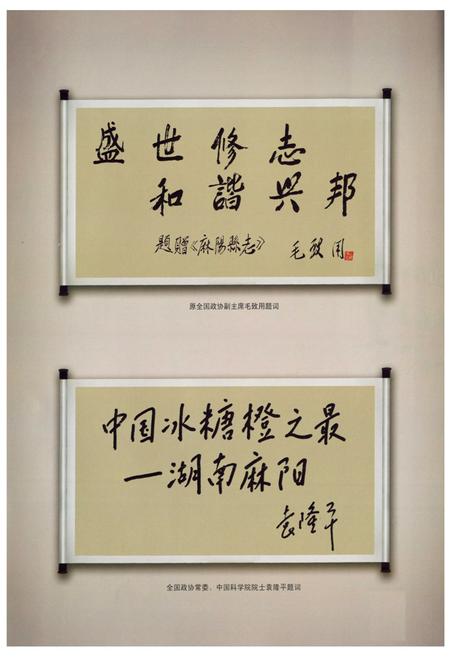 盛世修志
和諧興邦
題贈《麻陽縣志》
毛致用
原全国政协副主席毛致用题词
中国冰糖橙之最
一湖南麻阳
袁隆平
全国政协常委、中国科学院院士袁隆平题词